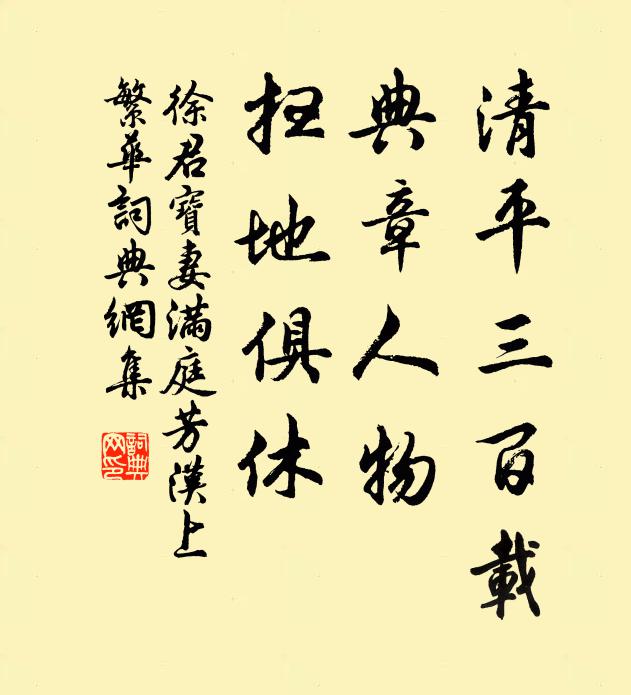 清平三百載
典章人物
扫地俱休
徐君寶妻滿庭芳漢上
繁華詞典網集
詞典网印